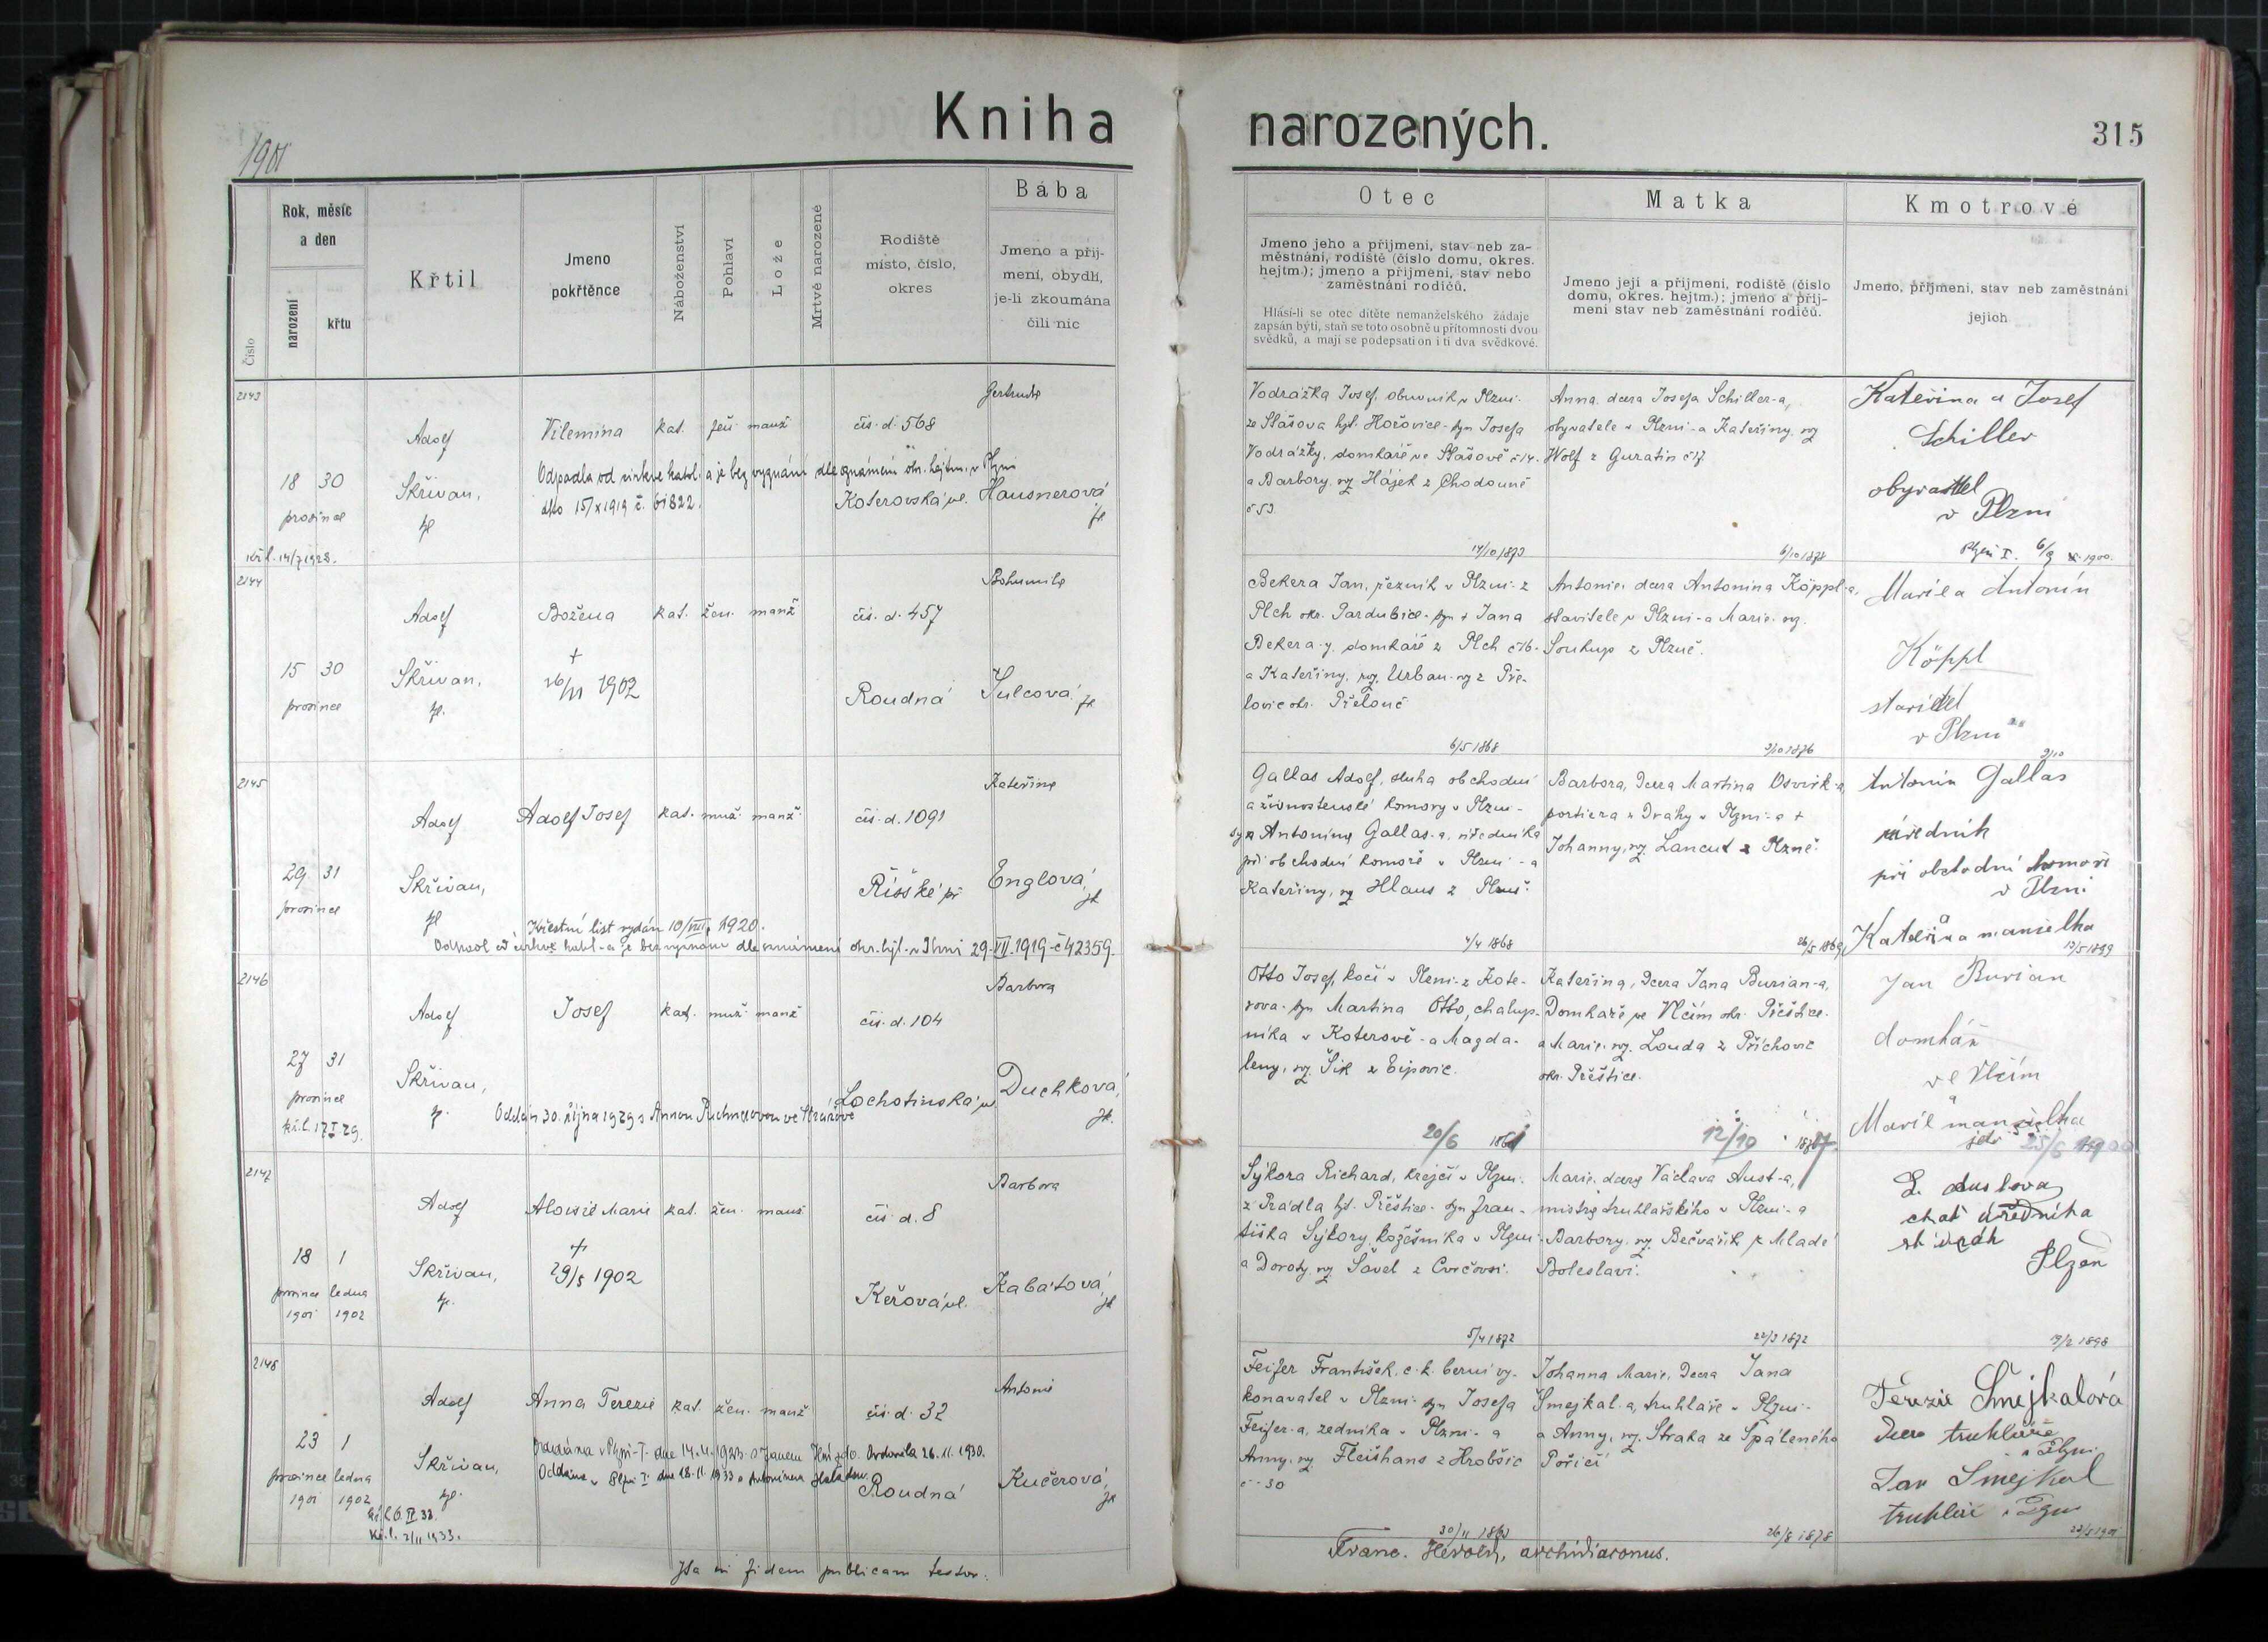 Kniha narozených.
315
1901
Číslo
Rok, měsíc a den
narození
křtu
Křtil
Jmeno pokřtěnce
Náboženství
Pohlaví
Lože
Mrtvě narozené
Rodiště
místo, číslo, okres
Bába
Jmeno a příj-
mení, obydlí,
je-li zkoumána
čili nic
Otec
Jmeno jeho a příjmení, stav neb za-
městnání, rodiště (číslo domu, okres.
hejtm.); jmeno a příjmení, stav nebo
zaměstnání rodičů.
Hlásí-li se otec dítěte nemanželského žádaje
zapsán býti, staň se toto osobně u přítomnosti dvou
svědků, a mají se podepsati on i ti dva svědkové.
Matka
Jmeno její a příjmení, rodiště (číslo
domu, okres. hejtm.); jmeno a příj-
mení stav neb zaměstnání rodičů.
Kmotrové
Jmeno, příjmení, stav neb zaměstnání
jejich
2143
18 30
prosince
Adolf
Skřivan,
Vilemina kat. žen. manž
čís. d. 568
Koterovská ul.
Odpadla od církve katol. a je bez vyznání dle oznámení okr. hejtm. v Plzni
dto 15/X 1919 č. 61822.
Gertruda
Hausnerová
Vodrážka Josef, obuvník v Plzni-
ze Stašova hjt. Hořovice- syn Josefa
Vodrážky, domkáře ve Stašově č 14.
a Barbory, roz. Hájek z Chodouně
č 53.
14/10 1873
Anna, dcera Josefa Schiller-a,
obyvatele v Plzni-a Kateřiny, roz
Wolf z Guratin č 17
6/10 1878
Kateřina a Josef
Schiller
obyvatel
v Plzni
2144
15 30
prosince
Adolf
Skřivan,
Božena kat. žen. manž
+
26/VI 1902
čís. d. 457
Roudná
Bohumila
Šulcová
Bekera Jan, řezník v Plzni-z
Plch okr. Pardubice- syn + Jana
Bekera-y, domkáře z Plch č 16-
a Kateřiny, roz. Urban-ny z Pře-
lovic okr. Přelouč
6/5 1868
Antonie, dcera Antonína Köppl-a,
stavitele v Plzni-a Marie- roz.
Soukup z Plzně.
Marie a Antonín
Köppl
stavitel
v Plzni
2145
29 31
prosince
Adolf
Skřivan,
Adolf Josef kat. muž. manž.
čís. d. 1091
Říšské př
Křestní list vydán 10/VIII. 1920.
Kateřina
Englová
Gallas Adolf, sluha obchodní
a živnostenské komory v Plzni-
syn Antonína Gallas-a, úředníka
při obchodní komoře v Plzni -a
Kateřiny, roz Hlaus z Plzně.
4/4 1868
Barbora, dcera Martina Osvirk-a,
portiera z Dráhy v Plzni-a +
Johanny, roz. Lancut z Plzně.
26/5 1869
Antonín Gallas
úředník
při obchodní komoře
v Plzni
a
Kateřina manželka
2146
27 31
prosince
Adolf
Skřivan,
Josef kat. muž. manž
čís. d. 104
Lochotínská ul
Barbora
Duchková
Otto Josef, kočí v Plzni-z Kote-
rova- syn Martina Otto, chalup-
níka v Koterově -a Magda-
leny, roz. Šik z Ejpovic.
20/6
Kateřina, dcera Jana Burian-a,
Domkáře ve Vlčím okr. Přeštice-
a Marie, roz. Louda z Příchovic
okr. Přeštice.
12/10
Jan Burian
domkář
ve Vlčím
a
Marie manželka
2147
18 1
prosince ledna
1901 1902
Adolf
Skřivan,
Aloisie Marie kat. žen. manž
+
29/5 1902
čís d. 8
Barbora
Kabátová
Sýkora Richard, krejčí v Plzni-
z Prádla hjt. Přeštice- syn Fran-
tiška Sýkory, kožešníka v Plzni-
a Doroty, roz. Šavel z Cvrčovsi.
5/4 1872
Marie, dcera Václava Aust-a,
mistra truhlářského v Plzni-a
Barbory, roz. Bečvářík z Mladé
Boleslavi.
22/3 1872
Plzeň
19/2 1898
2148
23 1
prosince ledna
1901 1902
Adolf
Skřivan,
Anna Terezie kat. žen. manž
čís. d. 32
Roudná
Antonie
Kučerová
Feifer František, c. k. berní vy-
konavatel v Plzni- syn Josefa
Feifer-a, zedníka v Plzni- a
Anny, roz Fleišhans z Hrobšic
č-30
Johanna Marie, dcera Jana
Šmejkal-a, truhláře v Plzni-
a Anny, roz. Straka ze Spáleného
Poříčí
26/8 1878
Terezie Šmejkalová
dcera truhláře
v Plzni
Jan Šmejkal
truhlář v Plzni
Ita in fidem publicam testor:
Franc. Herold, archidiaconus.